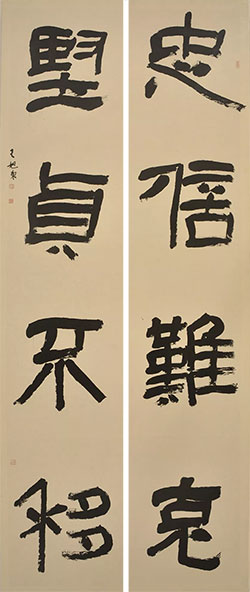 忠信難克
堅貞不移